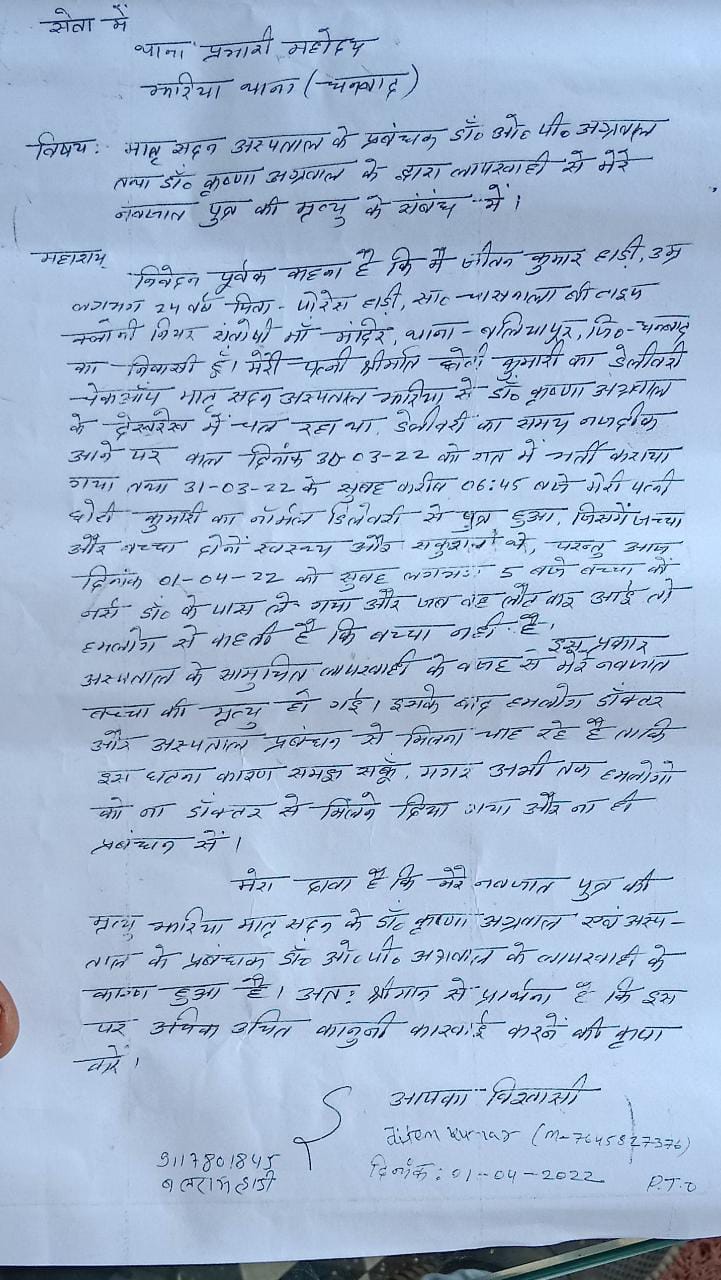 सेवा में
थाना प्रभारी महोदय
झरिया थाना (धनबाद)
विषय: मातृ सदन अस्पताल के प्रबंधक डॉ० ओ० पी० अग्रवाल
तथा डॉ० कृष्णा अग्रवाल के द्वारा लापरवाही से मेरे
नवजात पुत्र की मृत्यु के संबंध में।
महाशय,
निवेदन पूर्वक कहना है कि मैं जीतन कुमार हाड़ी, उम्र
लगभग 24 वर्ष पिता- पोरेस हाड़ी, सा०- चासनाला बी टाइप
क्लोनी नियर संतोषी माँ मंदिर, थाना- बलियापुर, जि०- धनबाद
का निवासी हूँ। मेरी पत्नी श्रीमति छोटी कुमारी का डेलीवरी
चेकऑप मातृ सदन अस्पताल झरिया से डॉ० कृष्णा अग्रवाल
के देखरेख में चल रहा था. डेलीवरी का समय नजदीक
आने पर कल दिनांक 30-03-22 को रात में भर्ती कराया
गया तथा 31-03-22 के सुबह करीब 06:45 बजे मेरी पत्नी
छोटी कुमारी का नॉर्मल डिलेवरी से पुत्र हुआ, जिसमें जच्चा
और बच्चा दोनों स्वस्थ्य और सकुशल थे, परन्तु आज
दिनांक 01-04-22 को सुबह लगभग 5 बजे बच्चा को
नर्स डॉ० के पास ले गया और जब वह लौट कर आई तो
हमलोग से कहती है कि बच्चा नहीं है। इस प्रकार
अस्पताल के सामुचित लापरवाही के वजह से मेरे नवजात
बच्चा की मृत्यु हो गई। इसके बाद हमलोग डॉक्टर
और अस्पताल प्रबंधन से मिलना चाह रहे हैं ताकि
इस घटना कारण समझ सकूँ, मगर अभी तक हमलोगो
को ना डॉक्टर से मिलने दिया गया और ना ही
प्रबंधन से।
मेरा दावा है कि मेरे नवजात पुत्र की
मृत्यु झरिया मातृ सदन के डॉ० कृष्णा अग्रवाल एवं अस्प-
ताल के प्रबंधक डॉ० ओ० पी० अग्रवाल के लापरवाही के
कारण हुआ है। अत: श्रीमान से प्रार्थना है कि इस
पर अधिक उचित कानुनी कारवाई करने की कृपा
करें।
आपका विश्वासी
Jiten Kumar (M-7645827376)
9117801845
दिनांक: 01-04-2022
बलराम हाड़ी
P.T.O